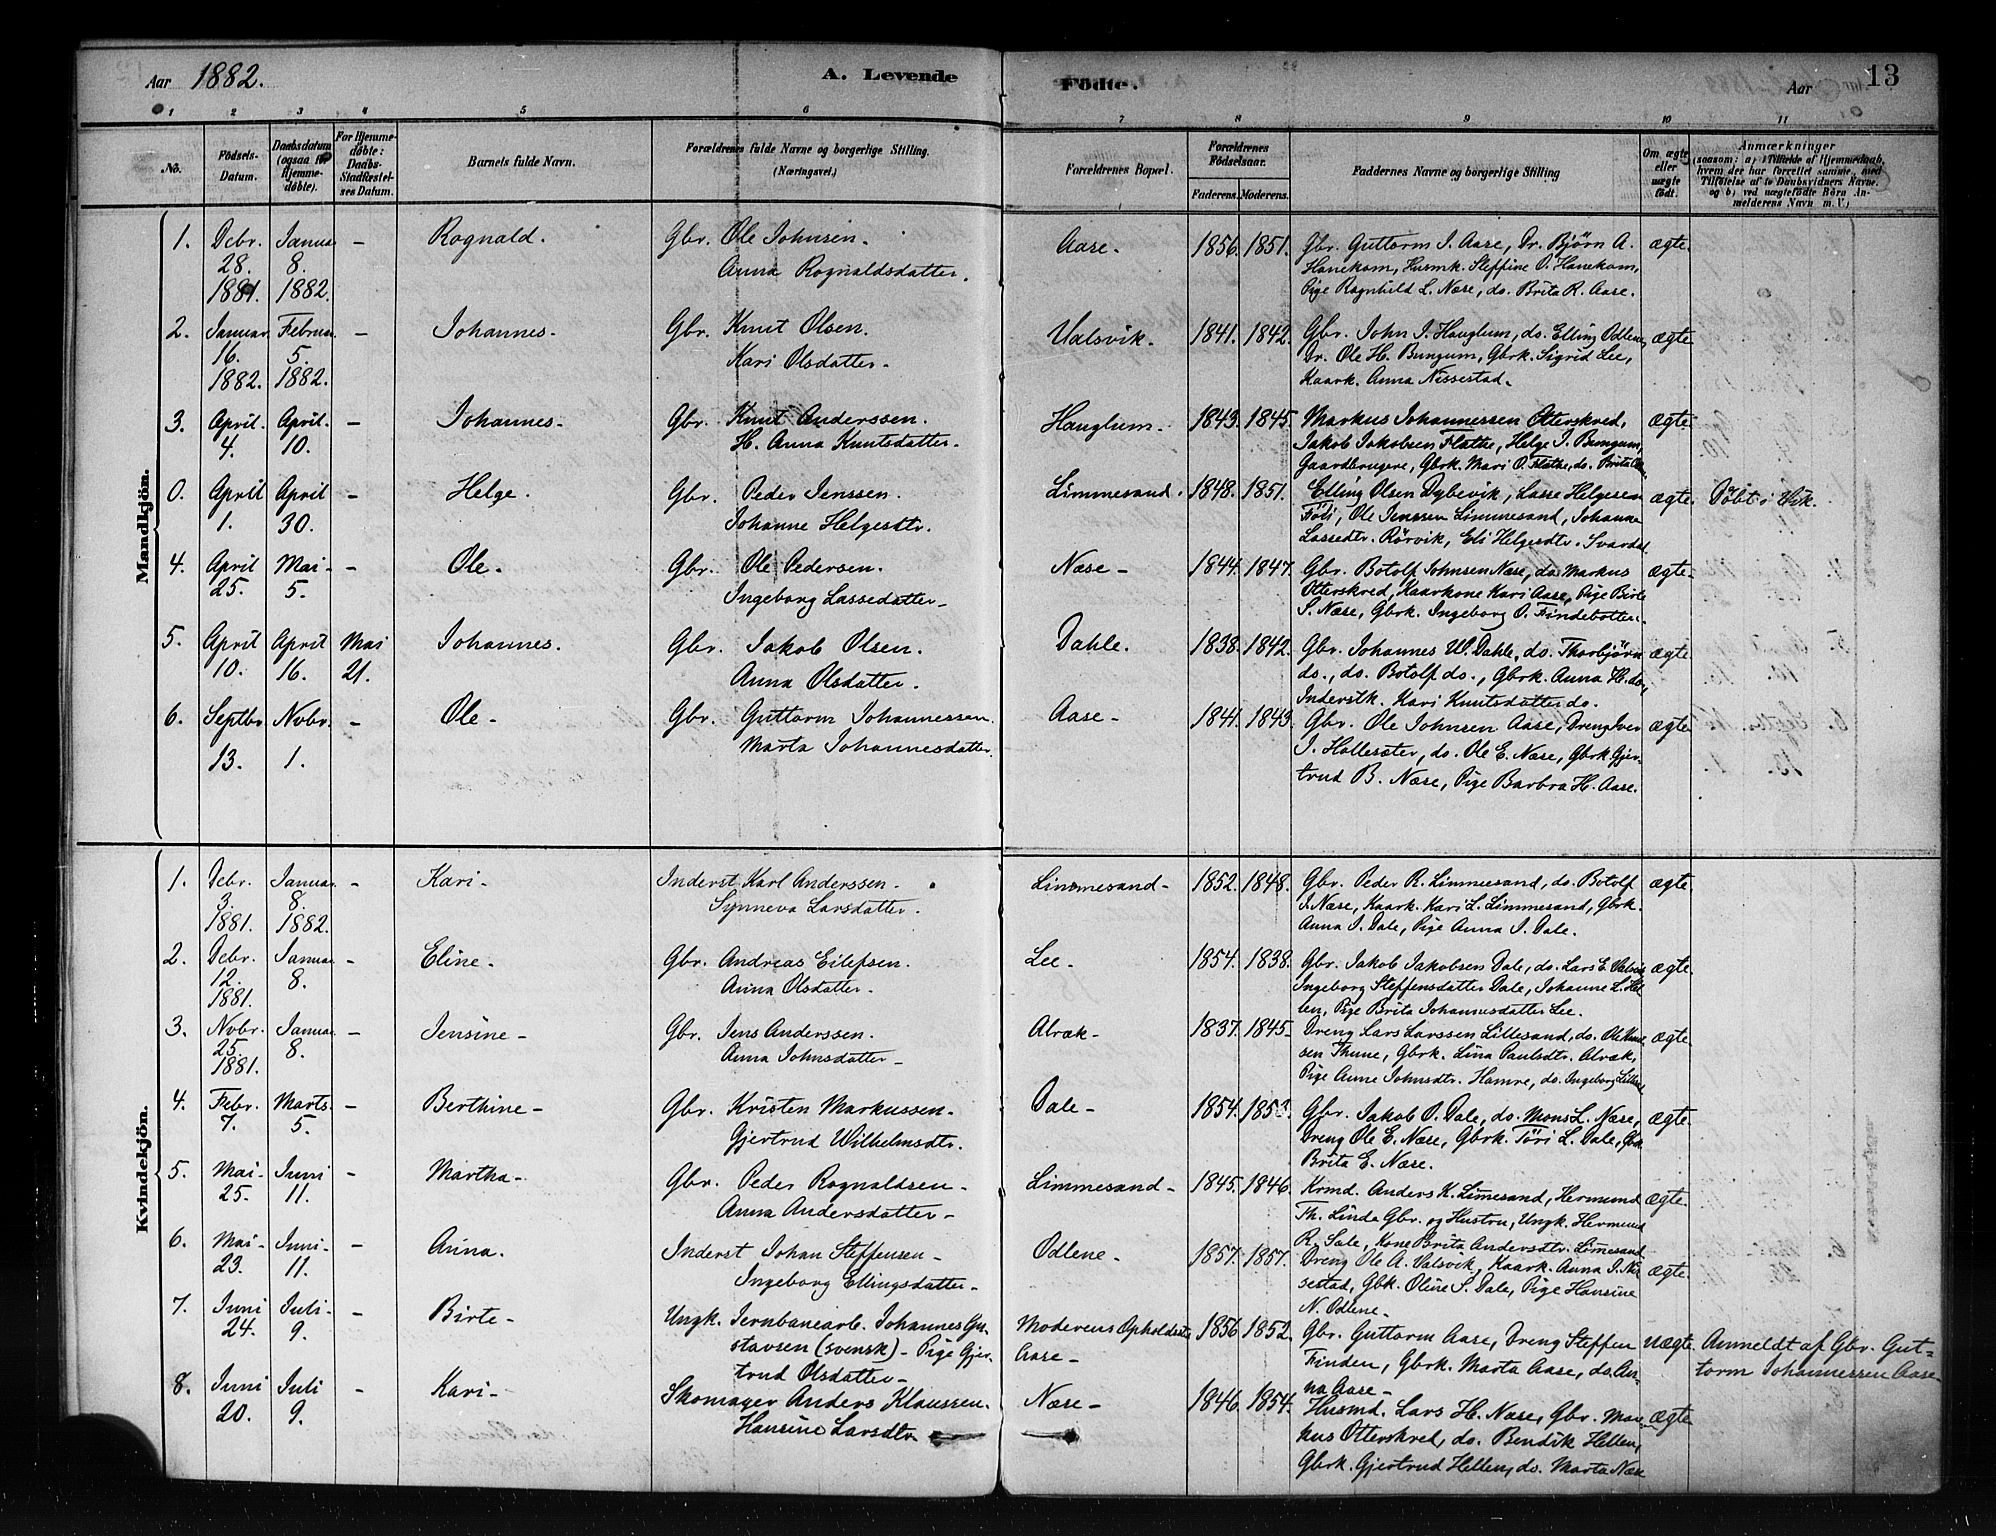 Aar 1882. A. Levende Födte. Aar 13
1 2 3 4 5 6 7 8 9 10 11
No.
Födsels-Datum.
Daabsdatum (ogsaa for Hjemmedöbte).
For Hjemmedöbte: Daabs-Stadfæstelses Datum.
Barnets fulde Navn.
Forældrenes fulde Navne og borgerlige Stilling.
(Næringsvei.)
Forældrenes Bopæl.
Forældrenes Födselsaar.
Faderens. Moderens.
Faddernes Navne og borgerlige Stilling
Om ægte eller uægte födt.
Anmærkninger
(saasom: a) i Tilfælde af Hjemmedaab, hvem der har forrettet samme, med Tilföielse af to Daabsvidners Navne, og b) ved uægtefödte Börn Anmelderens Navn m. V.)
Mandkjön.
1. Debr. Januar - Rognald. Gbr. Ole Johnsen. Aase. 1856. 1851. Gbr. Guttorm J. Aase, Dr. Bjørn A. ægte
28. 8. Anna Rognaldsdatter. Hanekam, Husmk. Steffine O. Hanekam,
1881. 1882. Pige Ragnhild L. Næse, do. Brita R. Aase.
2. Januar Februar - Johannes. Gbr. Knut Olsen. Valsvik. 1841. 1842. Gbr. John J. Hauglum, do. Elling Odlene, ægte
16. 5. Kari Olsdatter. Dr. Ole H. Bungum, Gbrk. Sigrid Lee,
1882. 1882. Kaark. Anna Nissestad.
3. April. April. - Johannes. Gbr. Knut Anderssen. Hauglum. 1843. 1845. Markus Johannessen Otterskred, ægte
4. 10. H. Anna Knutsdatter. Jakob Jakobsen Flathe, Helge J. Bungum,
Gaardbrugere, Gbrk. Mari O. Flathe, do. Brita
0. April April - Helge. Gbr. Peder Jenssen. Limmesand. 1848. 1851. Elling Olsen Dybevik, Lasse Helgesen ægte Döbt i Vik.
1. 30. Johanne Helgesdtr. Föli, Ole Jenssen Limmesand, Johanna
Lassedtr. Rörvik, Eli Helgesdtr. Svardal
4. April Mai - - Ole. Gbr. Ole Pedersen. Næse - 1844. 1847. Gbr. Botolf Johnsen Næse, do. Markus ægte
25. 5. Ingeborg Lassedatter. Otterskred, Kaarkone Kari Aase, Pige Birte
S. Næse, Gbrk. Ingeborg O. Findebotten.
5. April April Mai Johannes. Gbr. Jakob Olsen. Dahle. 1838. 1842. Gbr. Johannes W. Dahle, do. Thorbjörn ægte
10. 16. 21. Anna Olsdatter. do., do. Botolf do., Gbrk. Anna H. do.,
Inderstk. Kari Knutsdatter do.
6. Septbr. Novbr. - Ole - Gbr. Guttorm Johannessen. Aase - 1841. 1843. Gbr. Ole Johnsen Aase, Dreng Iver ægte
13. 1. Marta Johannesdatter. J. Hallesæter, do. Ole E. Næse, Gbrk Gjer-
trud B. Næse, Pige Barbra H. Aase.
Kvindekjön.
1. Debr. Januar - Kari - Inderst Karl Anderssen. Limmesand - 1852. 1848. Gbr. Peder R. Limmesand, do. Botolf ægte
3. 8. Synneva Larsdatter. J. Næse, Kaark. Kari L. Limmesand, Gbrk.
1881. 1882. Anna J. Dale, Pige Anna J. Dale.
2. Debr. Januar - Eline. Gbr. Andreas Eilefsen. Lee. 1854. 1838. Gbr. Jakob Jakobsen Dale, do. Lars E. Valsvik ægte
12. 8. Anna Olsdatter. Ingeborg Steffensdatter Dale, Johanne L. Hel-
1881. len, Pige Brita Johannesdatter Lee.
3. Nobr. Januar - Jensine - Gbr. Jens Anderssen. Alræk - 1837. 1845. Dreng Lars Larssen Lillesand, do. Ole Knud- ægte
25. 8. Anna Johnsdatter - sen Thune, Gbrk. Lina Paulsdtr. Alræk,
1881. Pige Anne Johnsdtr. Hamre, do. Ingeborg
4. Febr. Marts - Berthine - Gbr. Kristen Markussen - Dale - 1854. 1853. Gbr. Jakob O. Dale, do. Mons L. Næse, ægte
7. 5. Gjertrud Wilhelmsdtr. Dreng Ole E. Næse, Gbrk. Töri L. Dale, Gbrk
Brita E. Næse.
5. Mai - Juni - Martha - Gbr. Peder Rognaldsen - Limmesand - 1845. 1846. Krmd. Anders K. Limesand, Hermund ægte
25. 11. Anna Andersdatter - Th. Linda Gbr. og Hustru, Ungk. Hermund
R. Sale, Kone Brita Andersdtr. Limesand
6. Mai - Juni - - Anna. Inderst Johan Steffensen - Odlene - 1857. 1857. Dreng Ole A. Valsvik, Kaark. Anna J. Nis- ægte
23. 11. Ingeborg Ellingsdatter - sestad, Gbk. Oline S. Dale, Pige Hansine
N. Odlene -
7. Juni Juli - - Birte - Ungk. Jernbanearb. Johannes Gu- Moderens Opholdsst. 1856 1852. Gbr. Guttorm Aase, Dreng Steffen uægte Anmeldt af Gbr. Gut-
24. 9. stavsen (svensk) - Pige Gjer- Aase - Finden, Gbrk. Marta Aase, do. An- torm Johannessen Aase
trud Olsdatter - na Aase -
8. Juni Juli - Kari - Skomager Anders Klaussen. Næse - 1846. 1854. Husmd. Lars H. Næse, Gbr. Mar- ægte
20. 9. Hansine Larsdtr. kus Otterskred, do. Bendik Hellen,
Gbrk. Gjertrud Hellen, do. Marta Næse